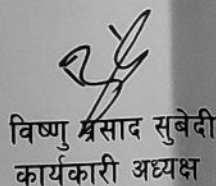 विष्णु प्रसाद सुबेदी
कार्यकारी अध्यक्ष